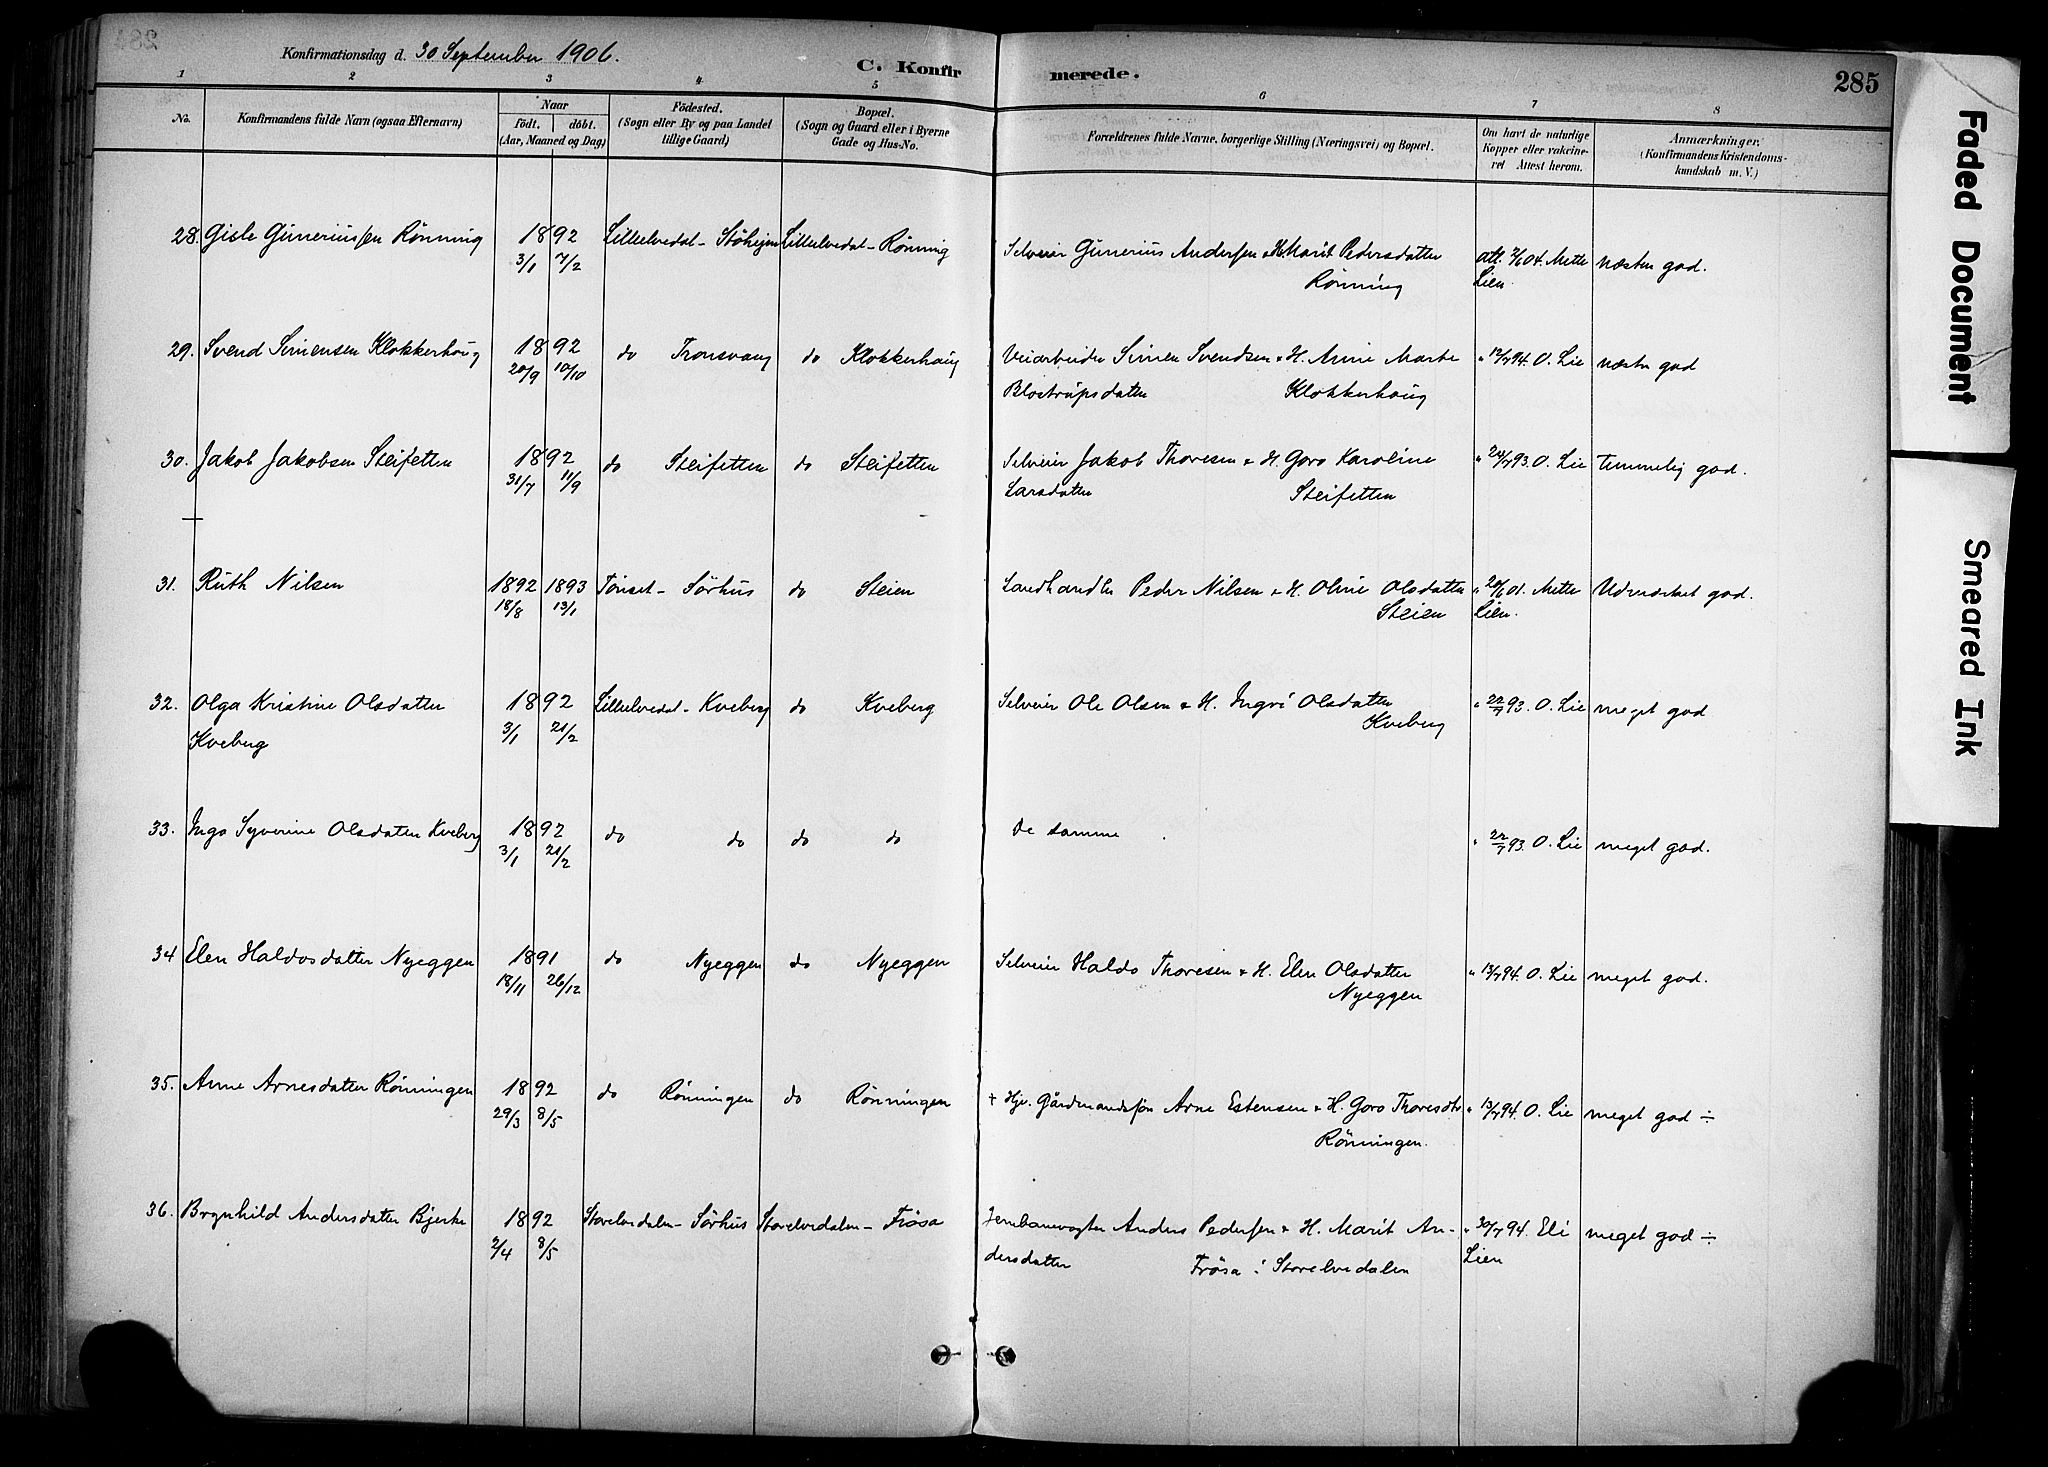 Konfirmationsdag d. 30 September 1906.
C. Konfirmerede.
285
1 2 3 4 5 6 7 8
No.
Konfirmandens fulde Navn (ogsaa Efternavn)
Naar
födt. döbt.
(Aar, Maaned og Dag)
Födested.
(Sogn eller By og paa Landet
tillige Gaard)
Bopæl.
(Sogn og Gaard eller i Byerne
Gade og Hus-No.
Forældrenes fulde Navne, borgerlige Stilling (Næringsvei) og Bopæl.
Om havt de naturlige
Kopper eller vakcine-
ret Attest herom.
Anmærkninger.
(Konfirmandens Kristendoms-
kundskab m. V.)
28. Gisle Gunerius sen Rönning 1892 Lillelvedal - Stöhejm Lillelvedal - Rönning Selveier Gunerius Andersen & H. Marit Pedersdatter att. 7/6 04. Mette næsten god.
3/1 7/2 Rönning Lien.
29. Svend Simensen Klokkerhaug 1892 do Tronsvang do Klokkerhaug Veiarbeider Simen Svendsen & H. Anne Marte " 12/7 94. O. Lie næsten god
20/9 10/10 Blostrupsdatter Klokkerhoug
30. Jakob Jakobsen Steifetten 1892 do Steifetten do Steifetten Selveier Jakob Thoresen & H. Goro Karoline " 24/7 93. O. Lie temmelig god.
31/7 11/9 Larsdatter Steifetten
31. Ruth Nilsen 1892 1893 Tönset - Sörhus do Steien Landhandler Peder Nilsen & H. Oline Olsdatter " 20/6 01. Mette Udmærket god.
18/8 13/1 Steien Lien.
32. Olga Kristine Olsdatter 1892 Lillelvedal - Kveberg do Kveberg Selveier Ole Olsen & H. Ingri Olsdatter " 22/7 93. O. Lie meget god
Kveberg 3/1 21/2 Kveberg
33. Inga Syverine Olsdatter Kveberg 1892 do do do do De samme " 22/7 93. O. Lie meget god.
3/1 21/2
34 Elen Haldosdatter Nyeggen 1891 do Nyeggen do Nyeggen Selveier Haldo Thoresen & H. Elen Olsdatter " 13/7 94. O. Lie meget god.
18/11 26/12 Nyeggen
35. Anne Arnesdatter Rönningen 1892 do Rönningen do Rönningen + Hjv. Gårdmandssön Arne Estensen & H. Goro Thoresdtr " 13/7 94. O. Lie meget god ÷
29/3 8/5 Rönningen.
36. Brynhild Andersdatter Bjerke 1892 Storelvedalen - Sörhus Storelvedalen - Frösa Jernbanevogter Anders Pedersen & H. Marit An- " 30/7 94. Eli meget god ÷
2/4 8/5 dersdatter Frösa i Storelvedalen Lien
Faded Document
Smeared Ink